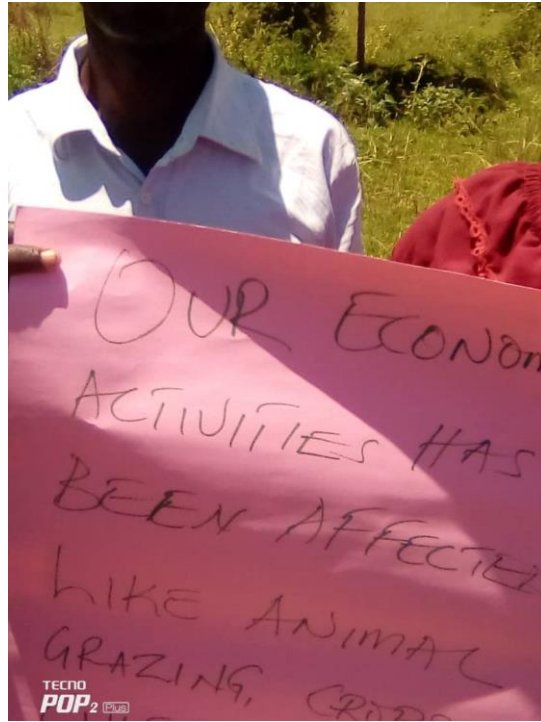 OUR ECONOM
ACTIVITIES HAS
BEEN AFFECTED
LIKE ANIMAL
GRAZING, CROPS
TECNO
POP2 Plus